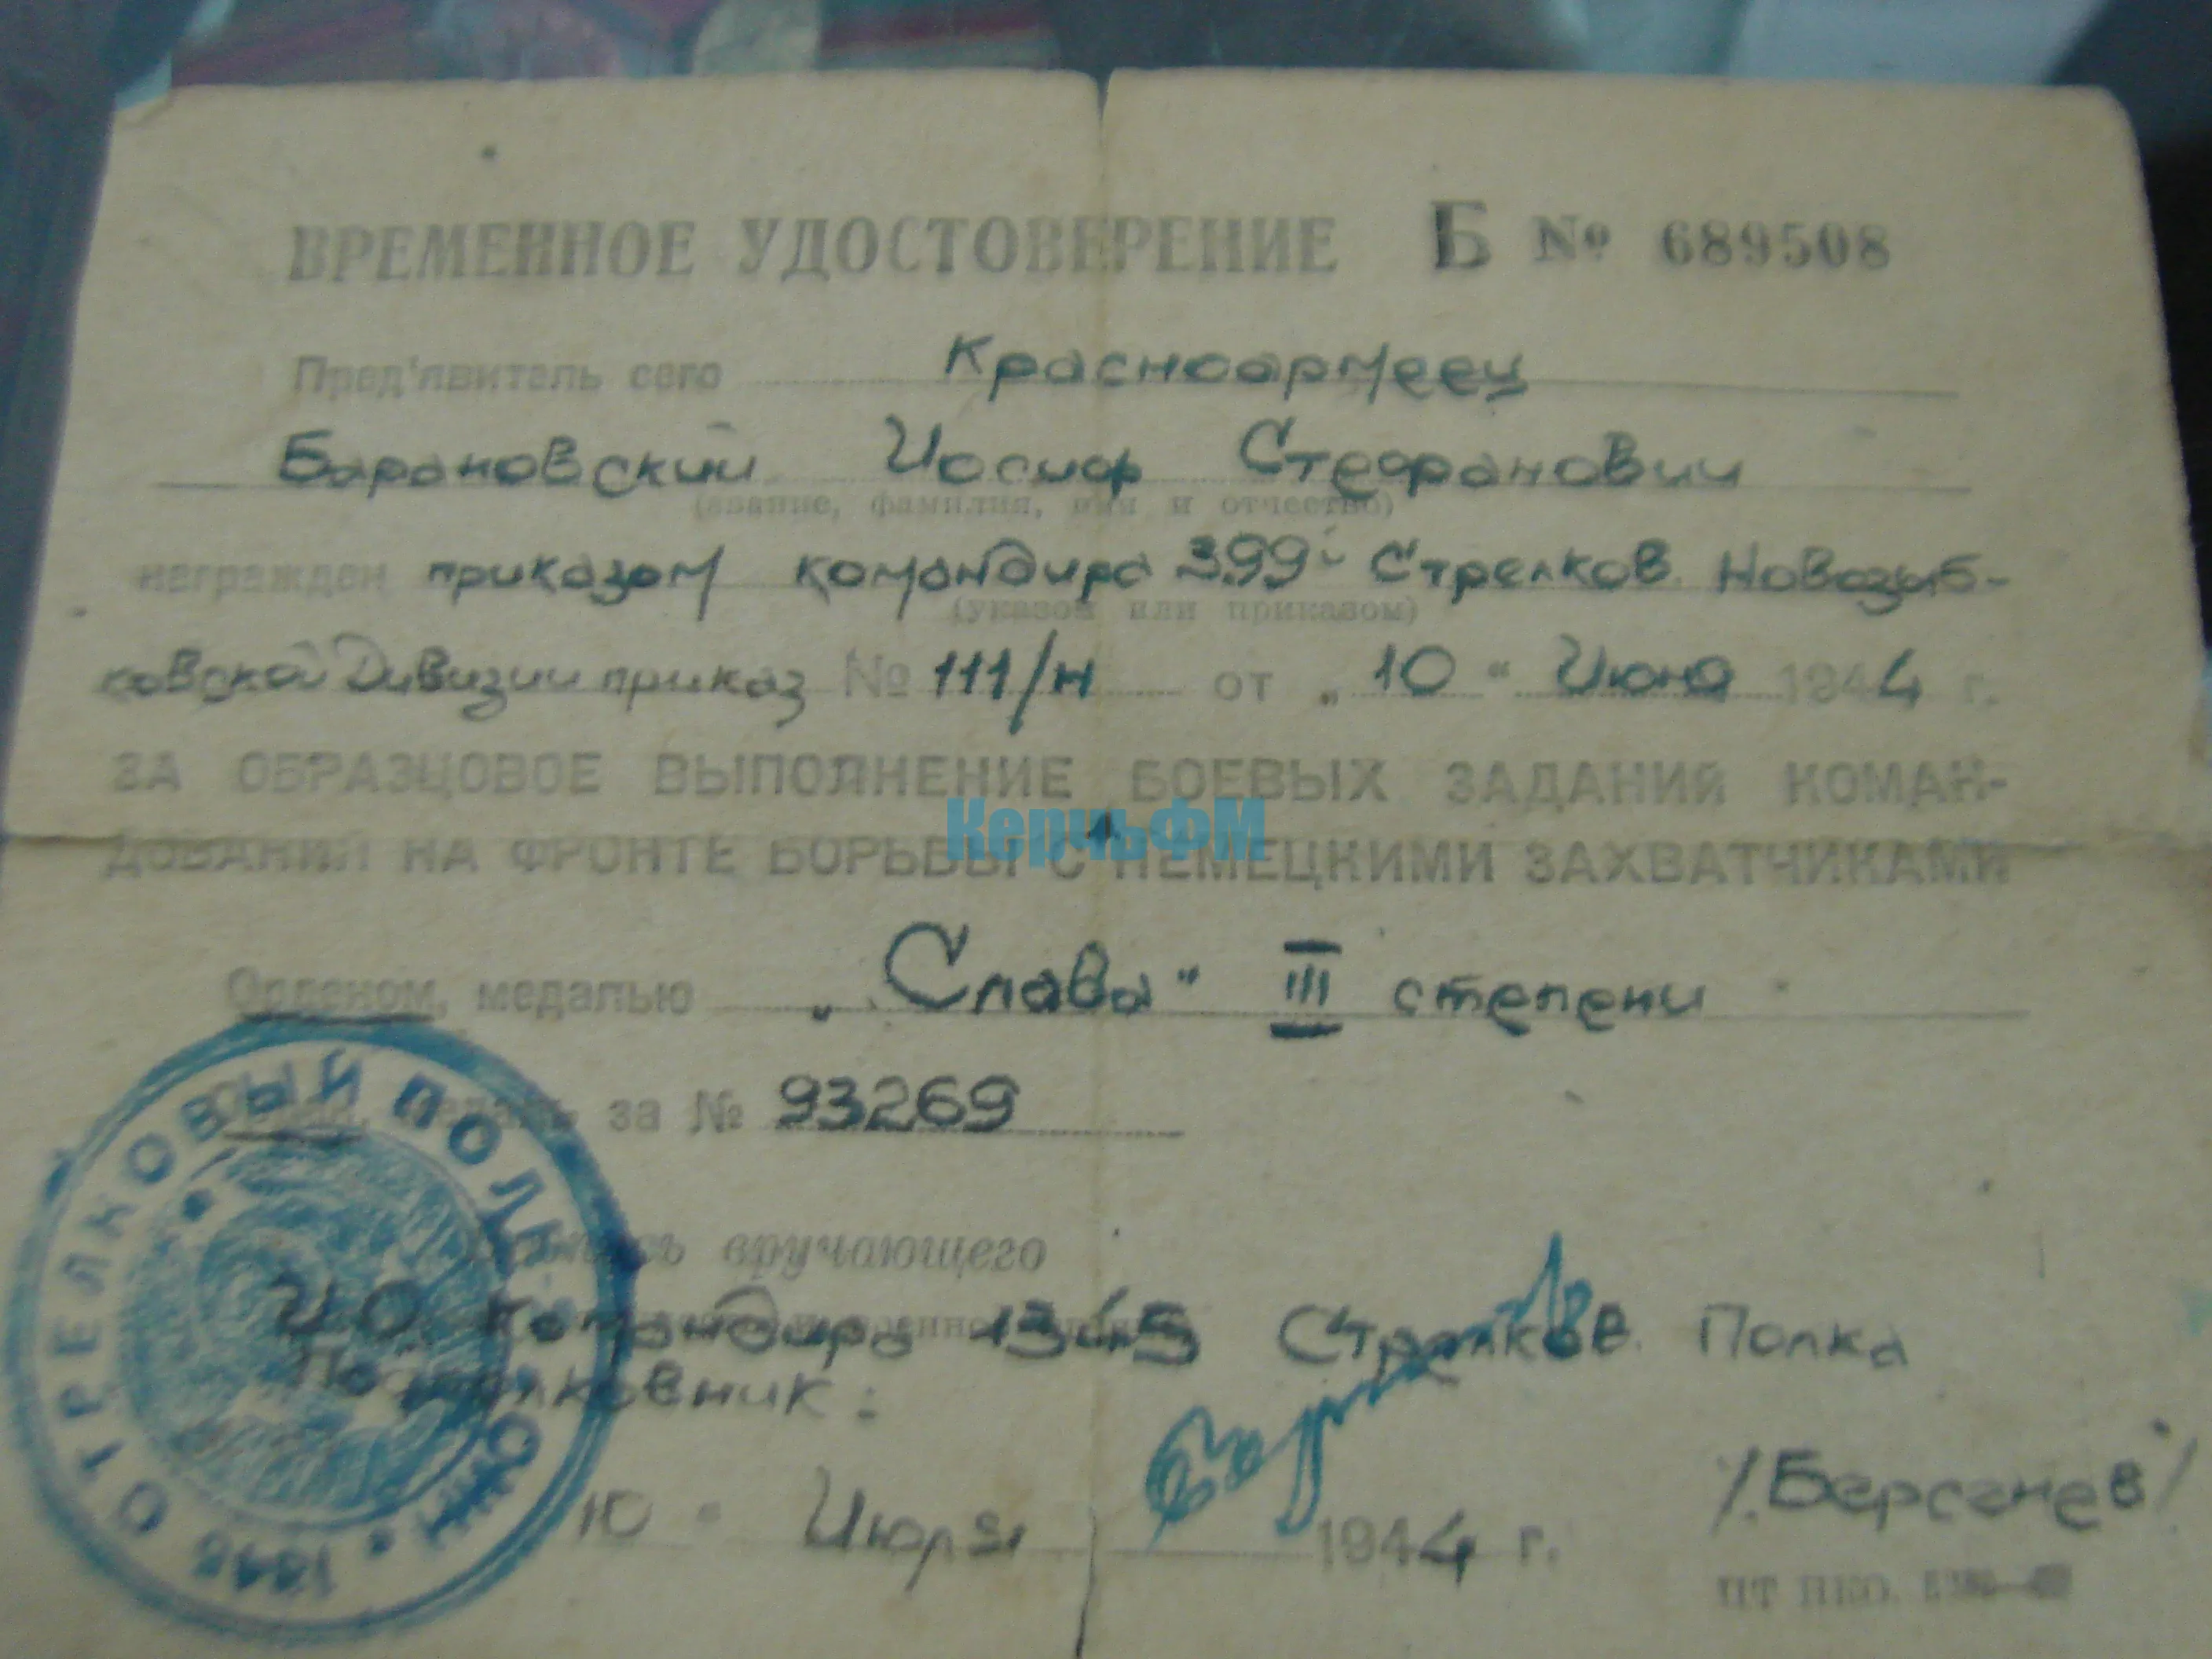 ВРЕМЕННОЕ УДОСТОВЕРЕНИЕ Б № 689508
Пред'явитель сего Красноармеец
Барановский Иосиф Стефанович
(звание, фамилия, имя и отчество)
награжден приказом командира 399й Стрелков. Новозыб-
(указом или приказом)
ковской Дивизии приказ № 111/н от „10“ Июня 1944 г.
ЗА ОБРАЗЦОВОЕ ВЫПОЛНЕНИЕ БОЕВЫХ ЗАДАНИЙ КОМАН-
ДОВАНИЯ НА ФРОНТЕ БОРЬБЫ С НЕМЕЦКИМИ ЗАХВАТЧИКАМИ
КерчьФМ
Орденом, медалью „Слава“ III степени
Орден, медаль за № 93269
Подпись вручающего
И.О. Командира 1345 Стрелков. Полка
Подполковник:
/Берсенев/
10 " Июля 1944 г.
ПТ НКО.
1345 СТРЕЛКОВЫЙ ПОЛК